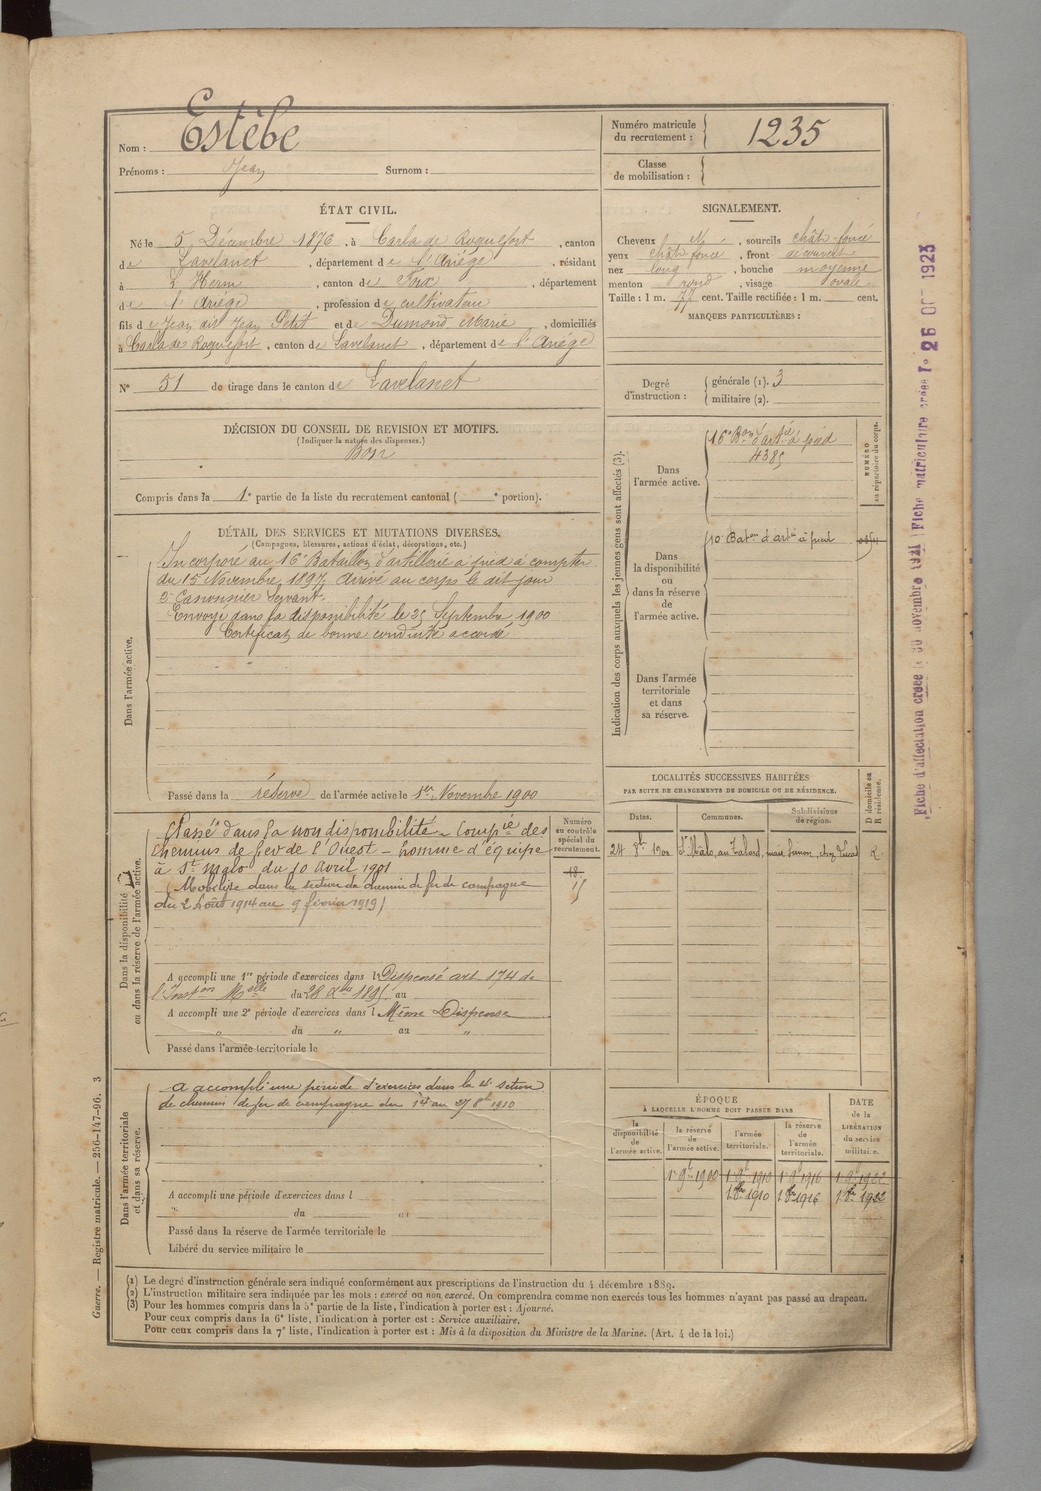 Nom : Estèbe
Prénoms : Jean Surnom :
Numéro matricule du recrutement : 1235
Classe de mobilisation :
ÉTAT CIVIL.
Né le 5 Décembre 1876, à Carla de Roquefort, canton
de Lavelanet, département de l'Ariège, résidant
à L'Herm, canton de Foix, département
de l'Ariège, profession de cultivateur
fils de Jean dit Jean Petit et de Dumond Marie, domiciliés
à Carla de Roquefort, canton de Lavelanet, département de l'Ariège
N° 51 de tirage dans le canton de Lavelanet
SIGNALEMENT.
Cheveux, sourcils chât. foncé
yeux chât. foncé, front découvert
nez long, bouche moyenne
menton rond, visage ovale
Taille : 1 m. 77 cent. Taille rectifiée : 1 m. cent.
MARQUES PARTICULIÈRES :
Degré d'instruction : générale (1). 3
militaire (2).
DÉCISION DU CONSEIL DE REVISION ET MOTIFS.
(Indiquer la nature des dispenses.)
Bon
Compris dans la 1e partie de la liste du recrutement cantonal ( e portion).
DÉTAIL DES SERVICES ET MUTATIONS DIVERSES.
(Campagnes, blessures, actions d'éclat, décorations, etc.)
Dans l'armée active.
Incorporé au 16e Bataillon d'artillerie à pied à compter
du 15 Novembre 1897, arrivé au corps le dit jour
2e Canonnier Servant.
Envoyé dans la disponibilité le 25 Septembre 1900
Certificat de bonne conduite accordé
Passé dans la réserve de l'armée active le 1er Novembre 1900
Indication des corps auxquels les jeunes gens sont affectés (3).
NUMÉRO au répertoire du corps.
Dans l'armée active.
16e Bon d'artie à pied
4385
Dans la disponibilité ou dans la réserve de l'armée active.
10e Baton d'artie à pied
Dans l'armée territoriale et dans sa réserve.
LOCALITÉS SUCCESSIVES HABITÉES
PAR SUITE DE CHANGEMENTS DE DOMICILE OU DE RÉSIDENCE.
D domicile ou R résidence.
Dates. Communes. Subdivisions de région.
St Malo, au Talard, R
Dans la disponibilité ou dans la réserve de l'armée active.
Numéro au contrôle spécial du recrutement.
Classé dans la non disponibilité - Compie des
Chemins de fer de l'Ouest - homme d'équipe
à St Malo du 10 avril 1901
(Mobilisé dans la section de chemin de fer de campagne
du 2 Août 1914 au 9 février 1919)
A accompli une 1re période d'exercices dans l Dispensé art. 174 de
l'Inston Melle du 28 Xbre 1895 au
A accompli une 2e période d'exercices dans l Même Dispense
du " au "
Passé dans l'armée territoriale le
Dans l'armée territoriale et dans sa réserve.
A accompli une période d'exercices dans la 4e section
de chemin de fer de campagne du 14 au 27 8bre 1910
A accompli une période d'exercices dans l
du au
Passé dans la réserve de l'armée territoriale le
Libéré du service militaire le
ÉPOQUE
À LAQUELLE L'HOMME DOIT PASSER DANS
DATE de la LIBÉRATION du service militaire.
la disponibilité de l'armée active. la réserve de l'armée active. l'armée territoriale. la réserve de l'armée territoriale.
1er 9bre 1900 1er 9bre 1910 1er 9bre 1916 1er 9bre 1922
1er 8bre 1910 1er 8bre 1916 1er 8bre 1922
(1) Le degré d'instruction générale sera indiqué conformément aux prescriptions de l'instruction du 4 décembre 1889.
(2) L'instruction militaire sera indiquée par les mots : exercé ou non exercé. On comprendra comme non exercés tous les hommes n'ayant pas passé au drapeau.
(3) Pour les hommes compris dans la 5e partie de la liste, l'indication à porter est : Ajourné.
Pour ceux compris dans la 6e liste, l'indication à porter est : Service auxiliaire.
Pour ceux compris dans la 7e liste, l'indication à porter est : Mis à la disposition du Ministre de la Marine. (Art. 4 de la loi.)
Guerre. — Registre matricule. — 256-147-96. 3
Fiche d'affectation créée le 30 novembre 1921 Fiche matriculaire créée le 26 OCT 1923